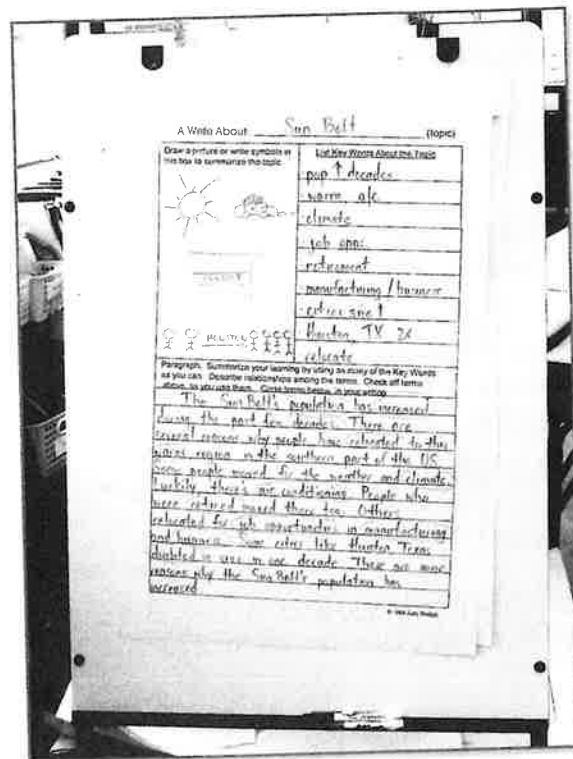 A Write About Sun Belt (topic)
Draw a picture or write symbols in
this box to summarize the topic.
List Key Words About the Topic
pop ↑ decades
warm, a/c
climate
job opps.
retirement
manufacturing / business
cities size ↑
Houston, TX 2x
relocate
HOUSTON
Paragraph. Summarize your learning by using as many of the Key Words
as you can. Describe relationships among the terms. Check off terms
above, as you use them. Circle terms below, in your writing.
The Sun Belt's population has increased
during the past few decades. There are
several reasons why people have relocated to this
warm region in the southern part of the US.
Some people moved for the weather and climate.
Luckily, there's air conditioning. People who
were retired moved there too. Others
relocated for job opportunities in manufacturing
and business. Some cities like Houston, Texas
doubled in size in one decade. These are some
reasons why the Sun Belt's population has
increased.